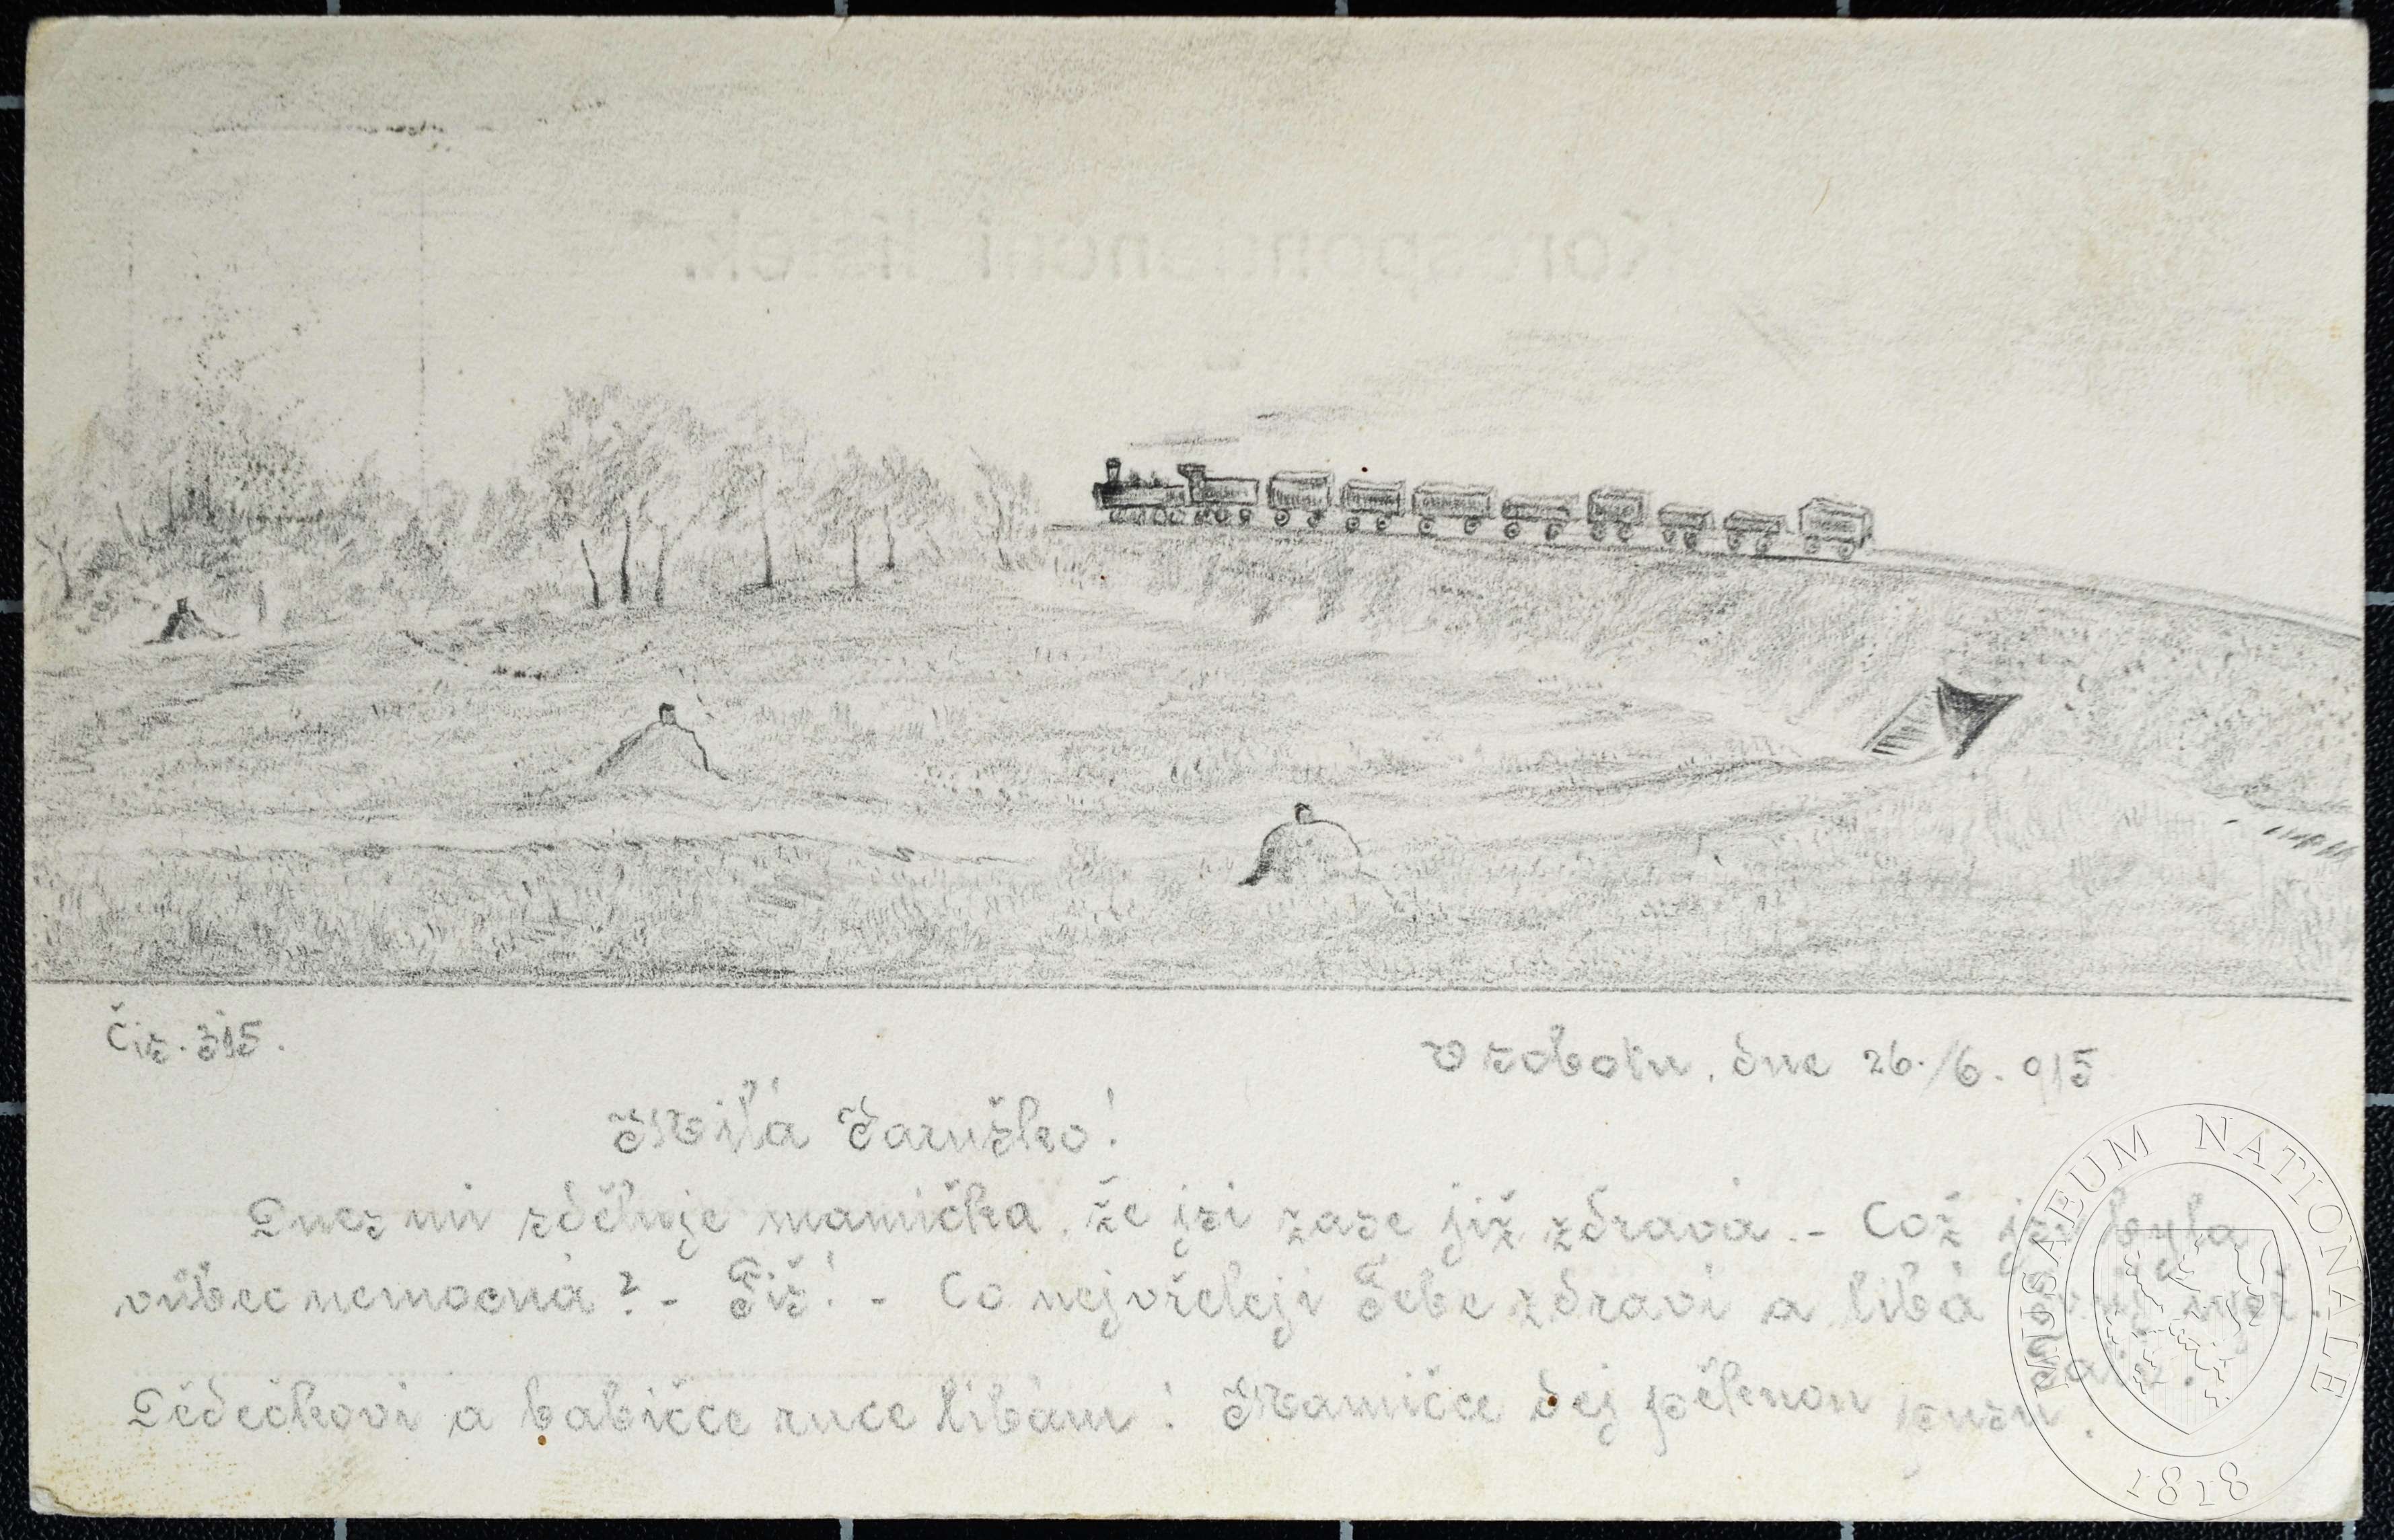 Korespondenční lístek.
Čís. 315.
V sobotu, dne 26./6. 915
Milá Jaruško!
Dnes mi sděluje mamička, že jsi zase již zdráva. - Což jsi byla
vůbec nemocna? - Tiš! - Co nejvřeleji Tebe zdraví a líbá Tvůj
Dědečkovi a babičce ruce líbám! Mamičce dej pěknou pusu.
MUSAEUM NATIONALE
1818